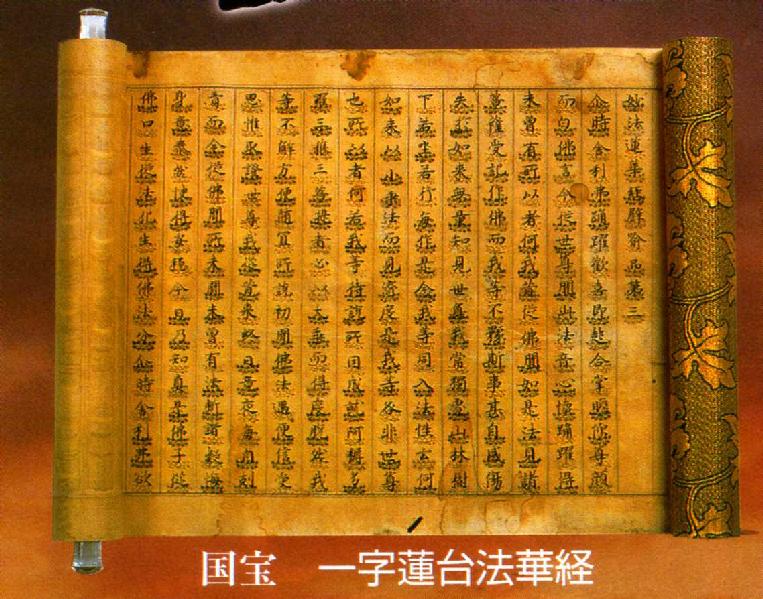 妙法蓮華経譬喻品第三
尒時舍利弗踊躍歡喜即起合掌瞻仰尊顔
而白佛言今従世尊聞此法音心懷踊躍得
未曾有所以者何我昔従佛聞如是法見諸
菩薩受記作佛而我等不豫斯事甚自感傷
失於如来無量知見世尊我常獨處山林樹
下若坐若行毎作是念我等同入法性云何
如来以小乗法而見済度是我等咎非世尊
也所以者何若我等待說所因成就阿耨多
羅三藐三菩提者必以大乗而得度脫然我
等不解方便随冝所說初聞佛法遇便信受
思惟取證世尊我従昔来終日竟夜毎自剋
責而今従佛聞所未聞未曾有法断諸疑悔
身意泰然快得安穏今日乃知真是佛子従
佛口生従法化生得佛法分尒時舍利弗欲
国宝 一字蓮台法華経